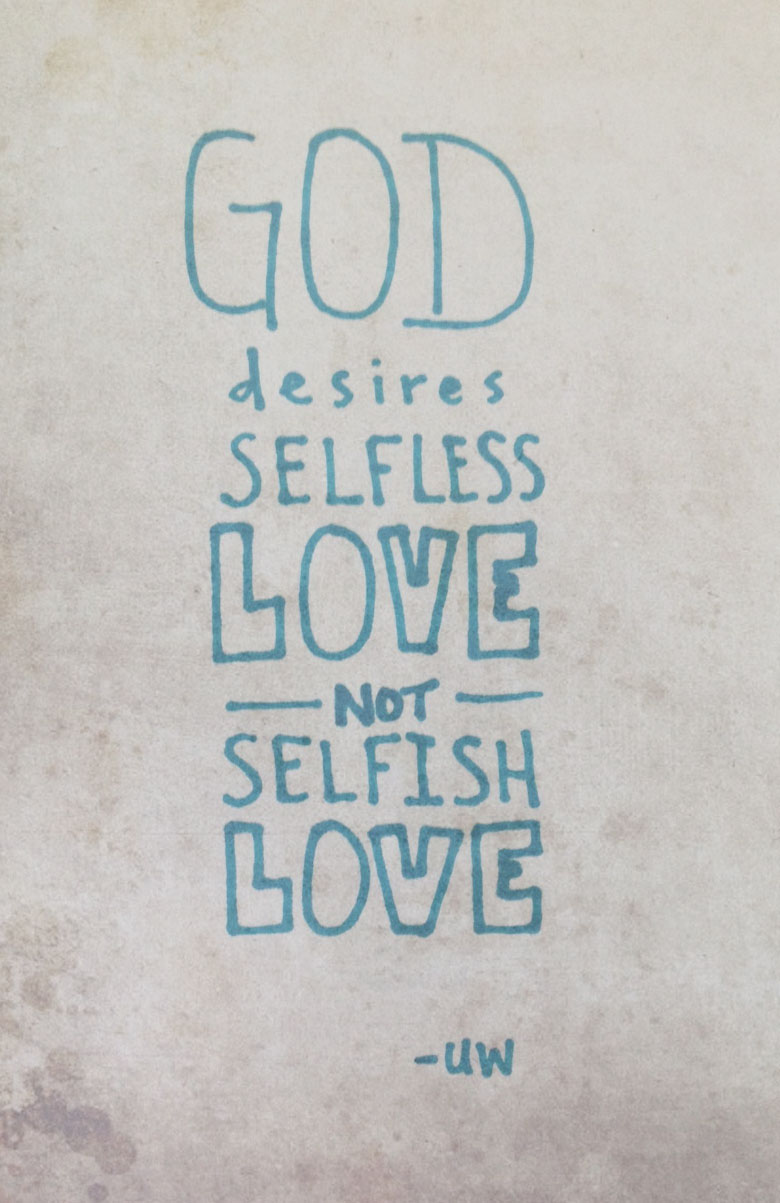 GOD
desires
SELFLESS
LOVE
— NOT —
SELFISH
LOVE
-UW